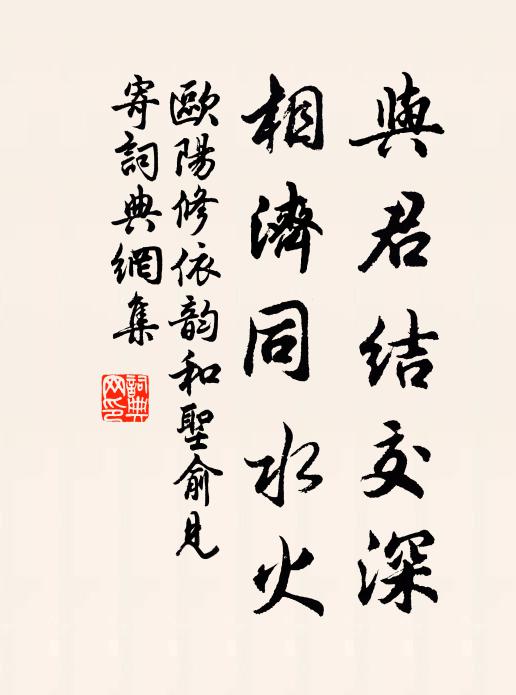 與君結交深
相濟同水火
歐陽修依韵和聖俞見
寄詞典網集
詞典
网印